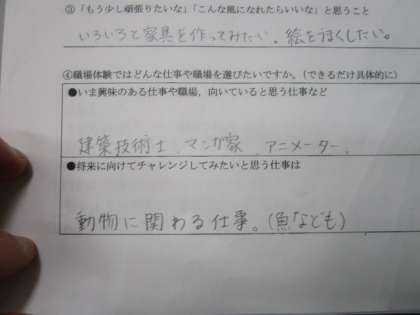 ③「もう少し頑張りたいな」「こんな風になれたらいいな」と思うこと
いろいろと家具を作ってみたい。絵をうまくしたい。
④職場体験ではどんな仕事や職場を選びたいですか。（できるだけ具体的に）
●いま興味のある仕事や職場，向いていると思う仕事など
建築技術士　マンガ家　アニメーター、
●将来に向けてチャレンジしてみたいと思う仕事は
動物に関わる仕事。（魚なども）